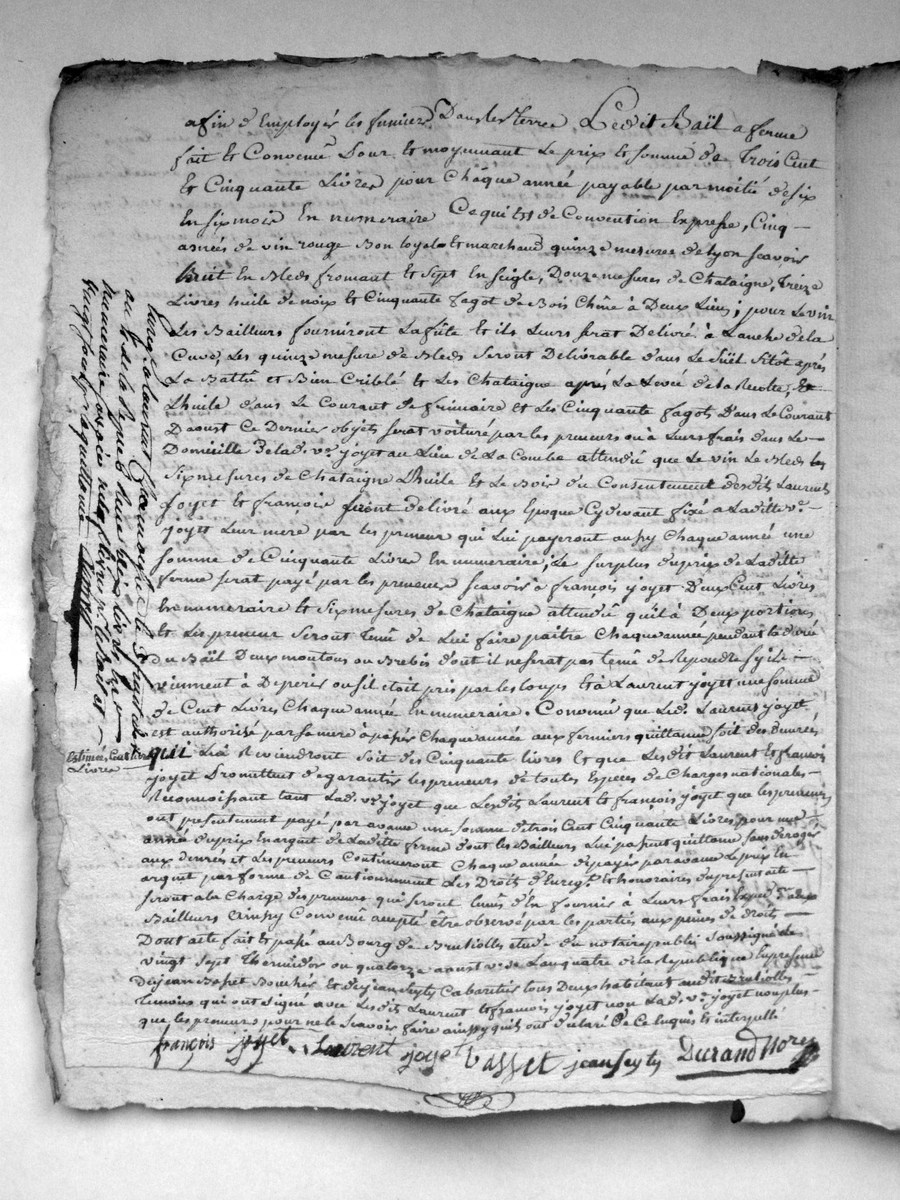 afin d'Employér les fumiers Dans les Terres Ledit Bail a ferme
fait et Convenu Pour et moyennant Le prix et somme de Trois Cent
et Cinquante Livres pour Châque année payable par moitié de six
En six mois En numeraire Ce qui Est de Convention Expresse, Cinq
asnées de vin rouge Bon loyal et marchand quinze mesures de Lyon scavoir
huit En Bleds fromant et Sept En Seigle, Douze mesures de Chataigne, Treize
Livres huile de noix et Cinquante fagot de Bois Chêne à Deux Liens; pour Le vin
Les Bailleurs fourniront La fûte et ils Leurs serat Delivré à Lanche de la
Cuve, Les quinze mesure de Bleds seront Delivrable dans Le Suël Sitôt après
La Battû et Bien Criblé et Les Chataigne après La Levée de la Recolte, Et
Lhuile dans Le Courant de frimaire et Les Cinquante fagots dans Le Courant
Daoust Ce Dernier objets serat voituré par les preneurs ou à Leurs frais dans Le
Domicille de lad. ve. joyet au Lieu de La Combe attendû que Le vin Le Bleds les
Six mesures de Chataigne Lhuile et Le Bois du Consentement desdits Laurent
joyet et francois seront delivré aux Epoque Cydevant fixé a Laditte ve.
joyet Leur mere par les preneur qui Lui payeront aussy Chaque année une
somme de Cinquante Livre En numeraire, Le surplus du prix de Laditte
ferme serat payé par les preneurs scavoir à françois joyet Deux Cent Livres
En numeraire et Six mesures de Chataigne attendû quil à Deux portions
et Les preneur seront Tenû de Lui faire paître Chaque année pendant la durée
du Baïl Deux moutons ou Brebis dont il ne serat pas tenû de Repondre sy ils
viennent à Deperir ou sil etoit pris par les loups et à Laurent joyet une somme
de Cent Livres Chaque année En numeraire. Convenû que Led. Laurent joyet
est authorisé par sa mere à passer Chaque année aux fermiers quittance soit des Denrées
qui Lui Reviendront soit des Cinquante livres et que Lesdit Laurent et françois
joyet Promettent de garantir les preneurs de toutes Especes de Charges nationales
Reconnoissant tant Lad. ve. joyet que Lesdits Laurent et françois joyet que les preneurs
ont presentement payé par avance une somme de trois Cent Cinquante Livres pour une
année du prix En argent de Laditte ferme dont les Bailleurs Lui passent quittance sans deroger
aux denrées et Les preneurs Continueront Chaque année de payer par avance Le prix En
argent par forme de Cautionnement Les Droit d'Enregt. et honoraires du present acte
seront a la Charge des preneurs qui seront tenus d'en fournir à Leurs frais Exped.on aux
Bailleurs Ainssy Convenû accepté être observé par les parties aux peines de droits
Dont acte fait et passé au Bourg de Brusiolles etude du notaire public soussigné Le
vingt sept Thermidor ou quatorze aoust v.s. Lan quatre de la Republique En presence
De jean Basset Boucher et de jean Seyty Cabaretier tous Deux habitant audit Brusiolles
temoins qui ont signé avec Lesdits Laurent et françois joyet non Lad. ve. joyet non plus
que les preneurs pour ne le scavoir faire ainssy quils ont declaré De Ce Enquis et interpellé
françois joyet Laurent joyet Basset jean Seyty Durand Nore
Estimée Cent
Livres
numeraire